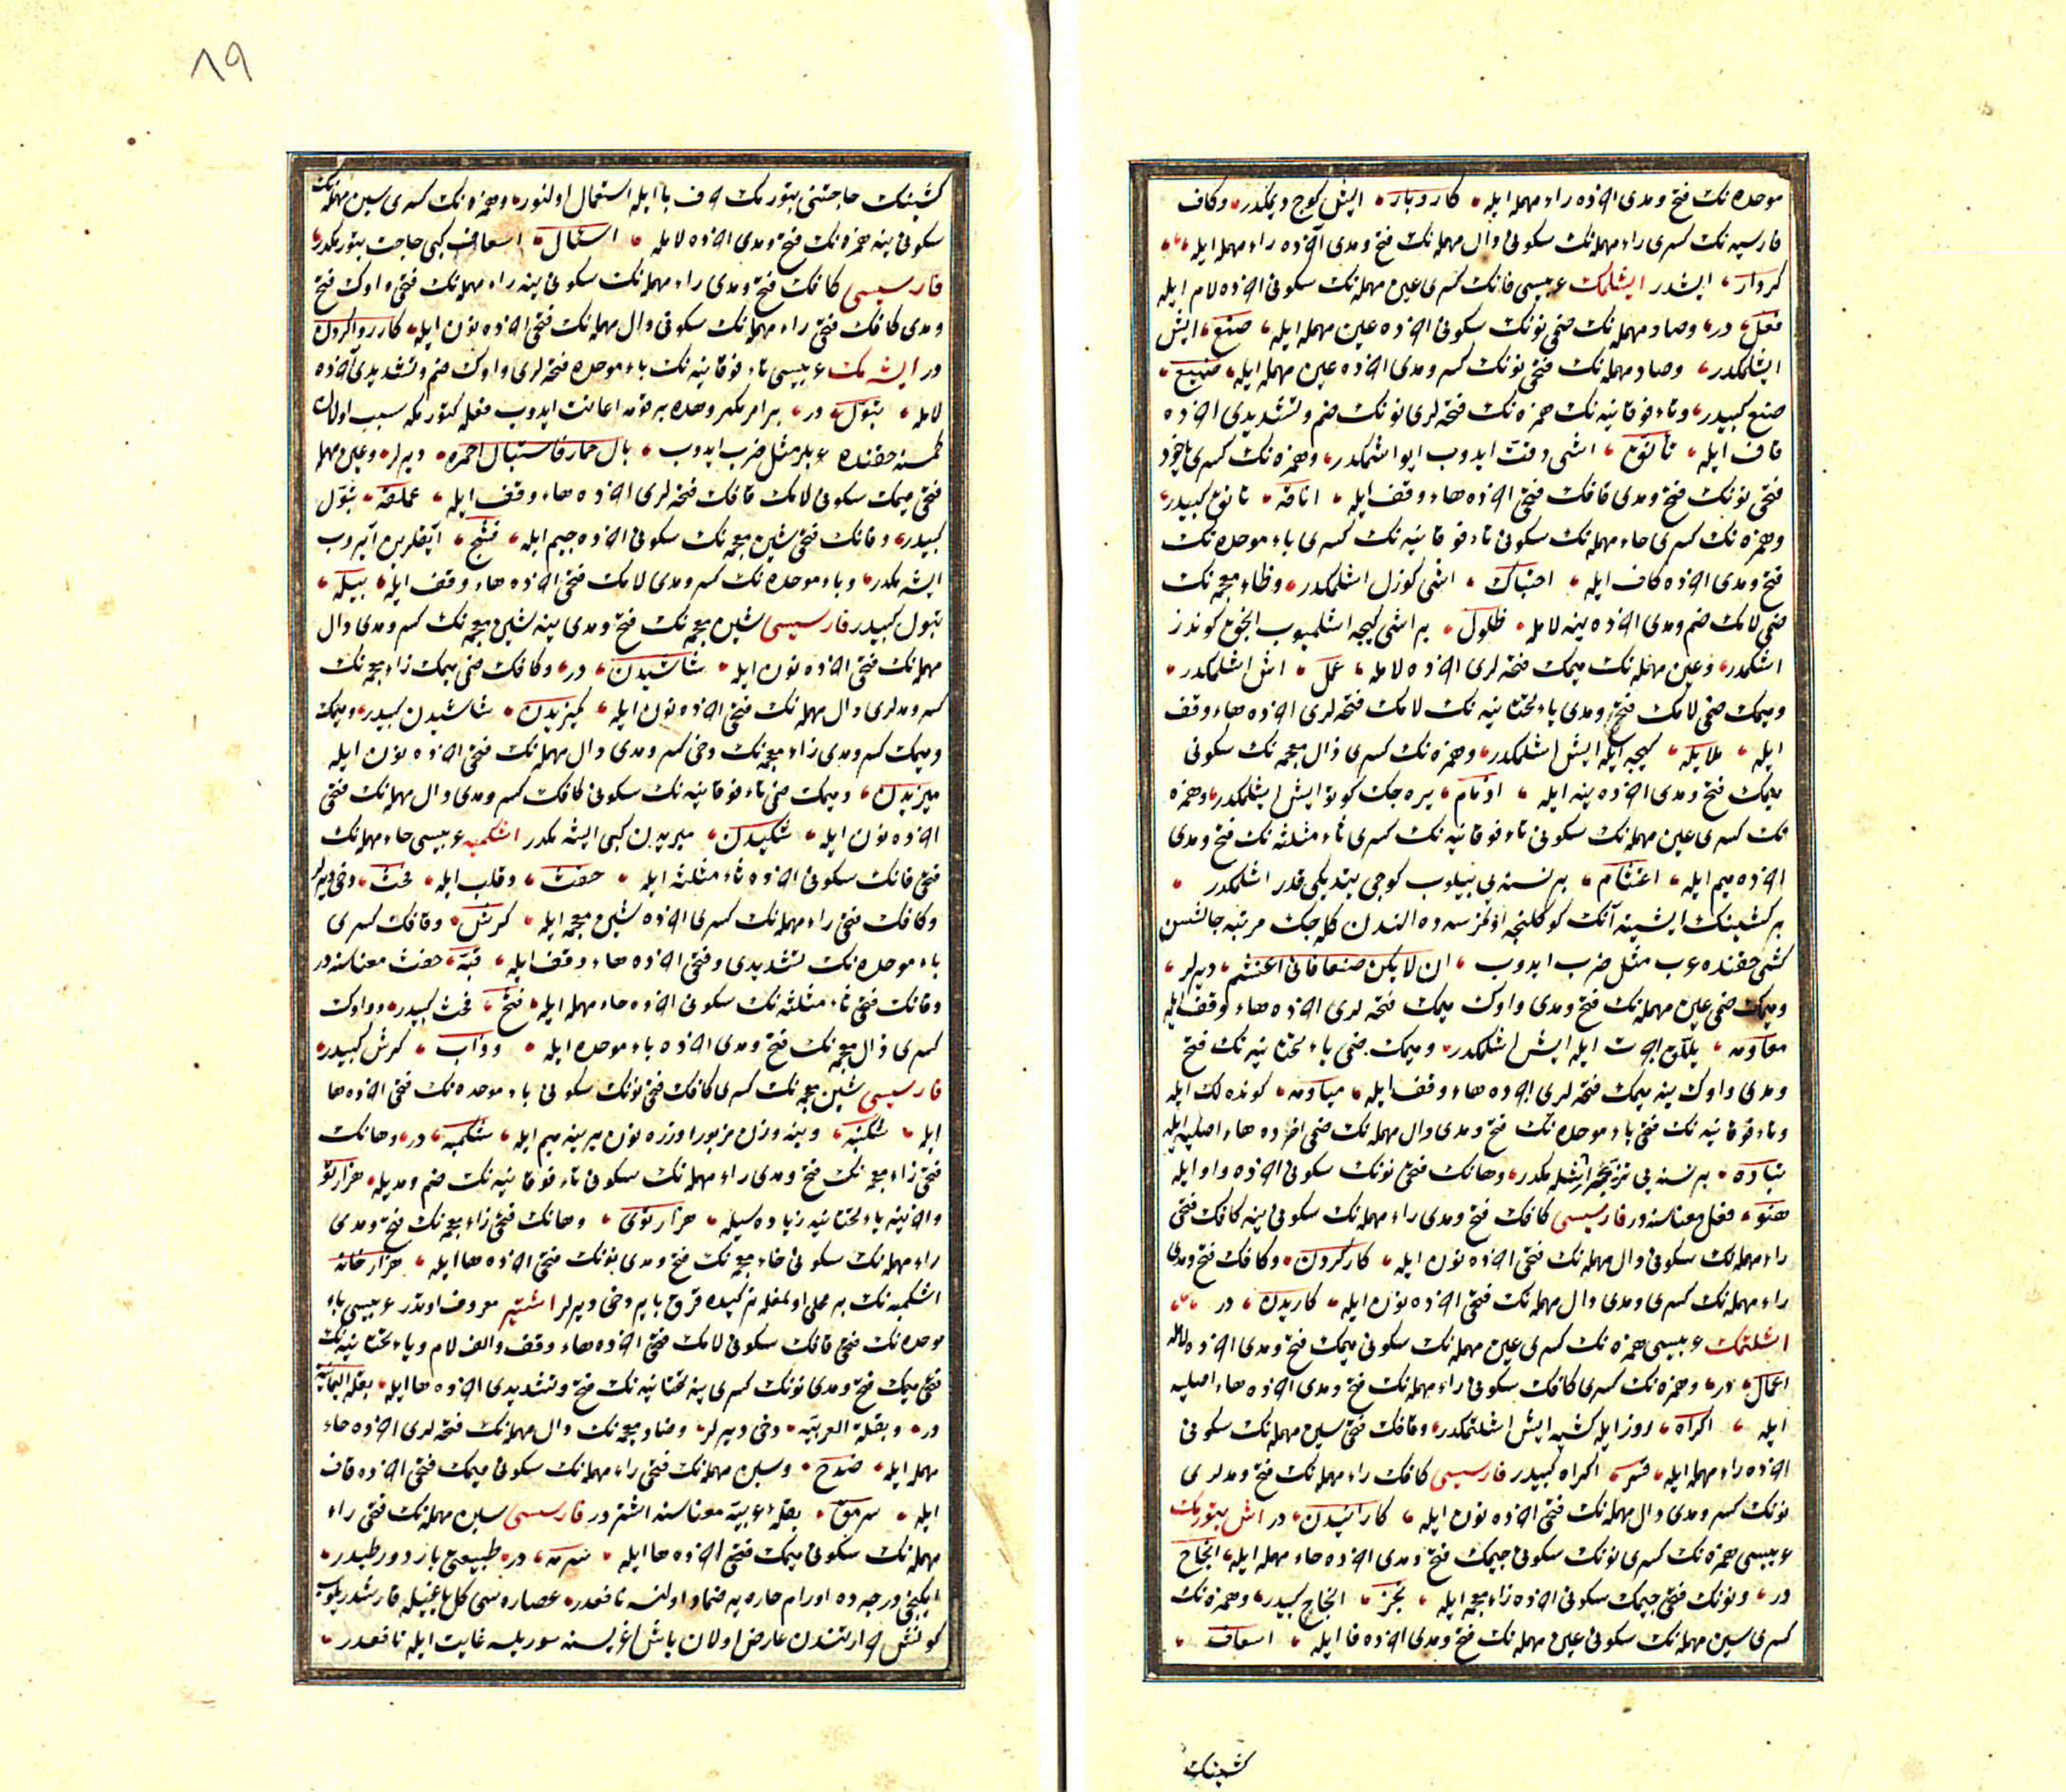 موحده نك فتح ومدى آخرنده راء مهمله ايله كاروبار ايش كوج ديمكدر وكاف
فارسيه نك كسرى راء مهمله نك سكونى دال مهمله نك فتح ومدى آخرنده راء مهمله ايله
كردار ايشدر ايشلمك عربيسى فانك كسرى عين مهمله نك سكونى آخرنده لام ايله
فعل در وصاد مهمله نك ضمى نونك سكونى آخرنده عين مهمله ايله صنع ايش
ايشلمكدر وصاد مهمله نك فتحى نونك كسر ومدى آخرنده عين مهمله ايله صنيع
صنع كبيدر وتاء فوقانيه نك همزه نك فتحه لرى نونك ضم وتشديدى آخرنده
قاف ايله تأنق ايشى دقت ايدوب ايو اشلمكدر وهمزه نك كسرى ياخود
فتحى نونك فتح ومدى قافك فتحى آخرنده هاء وقف ايله اناقه تانق كبيدر
وهمزه نك كسرى حاء مهمله نك سكونى تاء فوقانيه نك كسرى باء موحده نك
فتح ومدى آخرنده كاف ايله احتباك ايشى كوزل اشلمكدر وظاء معجمه نك
ضمى لامك ضم ومدى آخرنده ينه لامله ظلول بر ايشى كيجه اشلميوب انجق كوندز
اشلمكدر وعين مهمله نك ميمك فتحه لرى آخرنده لامله عمل اش اشلمكدر
وميمك ضمى لامك فتح ومدى ياء تحتانيه نك لامك فتحه لرى آخرنده هاء وقف
ايله ملايله كيجه ايله ايش اشلمكدر وهمزه نك كسرى ذال معجمه نك سكونى
ميمك فتح ومدى آخرنده ينه ايله يره جك كوتو ايش ايشلمكدر وهمزه
نك كسرى عين مهمله نك سكونى تاء فوقانيه نك كسرى ثاء مثلثه نك فتح ومدى
آخرنده ميم ايله اعتثام بر نسنه يى بيلوب كوجى يتديكى قدر اشلمكدر
بر كشينك ايشينه آنك كوكلنجه اولمزسه ده الندن كله جك مرتبه جالشن
كشى حقنده عرب مثل ضرب ايدوب ان لا يكن صنعا فانى اعتثم ديرلر
وميمك ضمى عين مهمله نك فتح ومدى واوك ميمك فتحه لرى آخرنده هاء وقف ايله
معاومه ييللق اجرت ايله ايش اشلمكدر وميمك ضمى ياء تحتانيه نك فتح
ومدى واوك ينه ميمك فتحه لرى آخرنده هاء وقف ايله مياومه كونده لك ايله
وتاء فوقانيه نك فتحى باء موحده نك فتح ومدى دال مهمله نك ضمى آخرنده هاء اصليه ايله
تباده بر نسنه يى تيزجه ايشلمكدر وهانك فتحى نونك سكونى آخرنده واو ايله
هنو فعل معناسنه در فارسيسى كافك فتح ومدى راء مهمله نك سكونى ينه كافك فتحى
راء مهمله نك سكونى دال مهمله نك فتحى آخرنده نون ايله كاركردن وكافك فتح ومدى
راء مهمله نك كسرى ومدى دال مهمله نك فتحى آخرنده نون ايله كاريدن در
اشلتمك عربيسى همزه نك كسرى عين مهمله نك سكونى ميمك فتح ومدى آخرنده لامله
اعمال در وهمزه نك كسرى كافك سكونى راء مهمله نك فتح ومدى آخرنده هاء اصليه
ايله اكراه زور ايله كشيه ايش اشلتمكدر وقافك فتحى سين مهمله نك سكونى
آخرنده راء مهمله ايله قسر اكراه كبيدر فارسيسى كافك راء مهمله نك فتح ومدلرى
نونك كسر ومدى دال مهمله نك فتحى آخرنده نون ايله كارانيدن در اش بتورمك
عربيسى همزه نك كسرى نونك سكونى جيمك فتح ومدى آخرنده حاء مهمله ايله انجاح
در ونونك فتحى جيمك سكونى آخرنده زاء معجمه ايله نجز انجاح كبيدر وهمزه نك
كسرى سين مهمله نك سكونى عين مهمله نك فتح ومدى آخرنده فا ايله اسعاف
كشينك
٨٩
كشينك حاجتنى بتورمك حرف با ايله استعمال اولنور وهمزه نك كسرى سين مهمله نك
سكونى ينه همزه نك فتح ومدى آخرنده لامله اسعاف كبى حاجت بتورمكدر
فارسيسى كافك فتح ومدى راء مهمله نك سكونى ينه راء مهمله نك فتحى واوك فتح
ومدى كافك فتحى راء مهمله نك سكونى دال مهمله نك فتحى آخرنده نون ايله كاررواكردن
در ايشه مك عربيسى تاء فوقانيه نك باء موحده فتحه لرى واوك ضم وتشديدى آخرنده
لامله تبول در بر امر مكروهده بر قومه اعانت ايدوب فعله كتورمكه سبب اولان
كمسنه حقنده عربلر مثل ضرب ايدوب بال حمار فاستبال احمره ديرلر وعين مهمله
فتحى ميمك سكونى لامك قافك فتحه لرى آخرنده هاء وقف ايله عملقه تبول
كبيدر وفانك فتحى شين معجمه نك سكونى آخرنده جيم ايله فشج آيقلرين آيروب
ايشه مكدر وباء موحده نك كسر ومدى لامك فتحى آخرنده هاء وقف ايله بيله
تبول كبيدر فارسيسى شين معجمه نك فتح ومدى ينه شين معجمه نك كسر ومدى دال
مهمله نك فتحى آخرنده نون ايله شاشيدن در وكافك ضمى ميمك زاء معجمه نك
كسر ومدلرى دال مهمله نك فتحى آخرنده نون ايله كميزيدن شاشيدن كبيدر وميمك
وميمك كسر ومدى زاء معجمه نك دخى كسر ومدى دال مهمله نك فتحى آخرنده نون ايله
ميزيدن وميمك ضمى تاء فوقانيه نك سكونى كافك كسر ومدى دال مهمله نك فتحى
آخرنده نون ايله ميزيدن كبى ايشه مكدر اشكمبه عربيسى حاء مهمله نك
فتحى فانك سكونى آخرنده ثاء مثلثه ايله حفث وقلب ايله فحث دخى ديرلر
وكافك فتحى راء مهمله نك كسرى آخرنده شين معجمه ايله كرش وقافك كسرى
باء موحده نك تشديدى وفتحى آخرنده هاء وقف ايله قبه حفث معناسنه در
وفانك فتحى ثاء مثلثه نك سكونى آخرنده حاء مهمله ايله فثح فحث كبيدر وواوك
كسرى ذال معجمه نك فتح ومدى آخرنده باء موحده ايله وذاب كرش كبيدر
فارسيسى شين معجمه نك كسرى كافك فتحى نونك سكونى باء موحده نك فتحى آخرنده ها
ايله شكنبه وينه وزن مزبور اوزره نون يرينه ميم ايله شكمبه در وهانك
فتحى زاء معجمه نك فتح ومدى راء مهمله نك سكونى تاء فوقانيه نك ضم ومديله هزارتو
وآخرينه ياء تحتانيه زياده سيله هزارتوى وهانك فتحى زاء معجمه نك فتح ومدى
راء مهمله نك سكونى خاء معجمه نك فتح ومدى نونك فتحى آخرنده ها ايله هزارخانه
اشكمبه نك بر محلى اولمغله تركيده قرق باير دخى ديرلر اشتير معروف اوتدر عربيسى باء
موحده نك فتحى قافك سكونى لامك فتحى آخرنده هاء وقف والف لام وياء تحتانيه نك
فتحى ميمك فتح ومدى نونك كسرى ينه تحتانيه نك فتح وتشديدى آخرنده ها ايله بقلة اليمانيه
در وبقلة العربيه دخى ديرلر وضاد معجمه نك دال مهمله نك فتحه لرى آخرنده حاء
مهمله ايله ضدح وسين مهمله نك فتحى راء مهمله نك سكونى ميمك فتحى آخرنده قاف
ايله سرمق بقلهٔ عربيه معناسنه اشتر در فارسيسى سين مهمله نك فتحى راء
مهمله نك سكونى ميمك فتحى آخرنده ها ايله سرمه در طبيعتى بارد ورطبدر
ايكنجى درجه ده اورام حاره يه ضماد اولنسه نافعدر عصاره سى كل ياغيله قارشدريلوب
كونش حرارتندن عارض اولان باش اغريسنه سوريلسه غايت ايله نافعدر